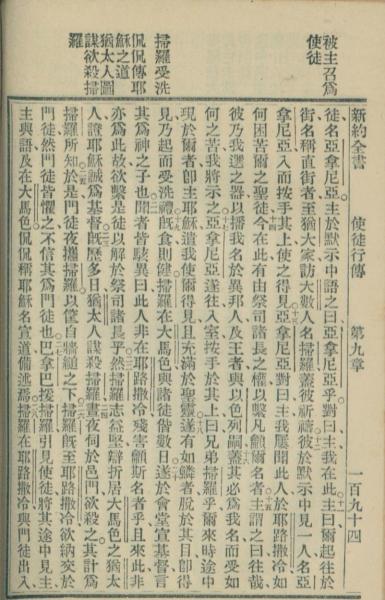 被主召爲
使徒
掃羅受洗
侃侃傳耶
穌之道
猶太人圖
謀欲殺掃
羅
新約全書 使徒行傳 第九章 一百九十四
徒名亞拿尼亞主於默示中語之曰亞拿尼亞乎對曰主我在此主曰爾起往於
街名稱直街者至猶大家訪大數人名掃羅蓋彼祈禱彼於默示中見一人名亞
拿尼亞入而按手其上使之得見亞拿尼亞對曰主我屢聞此人於耶路撒冷如
何困苦爾之聖徒今在此有由祭司諸長之權以繫凡籲爾名者主謂之曰往哉
彼乃我選之器以播我名於異邦人及王者與以色列嗣蓋其必爲我名而受如
何之苦我將示之亞拿尼亞遂往入室按手於其上曰兄弟掃羅乎爾來時途中
現於爾者卽主耶穌遣我使爾得見且充滿於聖靈遂有如鱗者脫於其目卽得
見乃起而受洗禮旣食則健掃羅在大馬色與諸徒偕數日遂於會堂宣基督言
其爲神之子也聞者皆駭異曰此人非在耶路撒冷殘害籲斯名者乎且來此非
亦爲此故欲繫是徒以解於祭司諸長乎然掃羅志益堅辯折居大馬色之猶太
人證耶穌誠爲基督旣歷多日猶太人謀殺掃羅晝夜伺於邑門欲殺之其計爲
掃羅所知於是門徒夜攜掃羅以筐自牆縋之下掃羅旣至耶路撒冷欲納交於
門徒然門徒皆懼之不信其爲門徒也巴拿巴援掃羅引見使徒將其途中見主
主與語及在大馬色侃侃稱耶穌名宣道備述焉掃羅在耶路撒冷與門徒出入